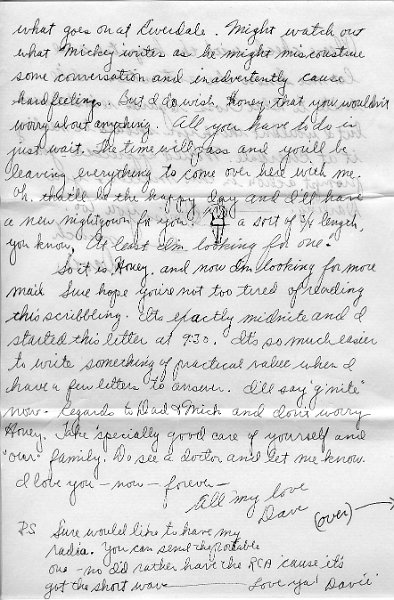 what goes on at Riverdale. Might watch out
what Mickey writes as he might misconstrue
some conversation and inadvertently cause
hard feelings. But I do wish, Honey, that you wouldn't
worry about anything. All you have to do is
just wait. The time will pass and you'll be
leaving everything to come over here with me.
Oh, that'll be the happy day and I'll have
a new nightgown for you. a sort of 3/4 length,
you know. At least I'm looking for one.
So it is, Honey, and now I'm looking for more
mail. Sure hope you're not too tired of reading
this scribbling. It's exactly midnite and I
started this letter at 9:30. It's so much easier
to write something of practical value when I
have a few letters to answer. I'll say "g'nite"
now - Regards to Dad & Mick and don't worry
Honey. Take 'specially good care of yourself and
"our" family. Do see a doctor and let me know.
I love you - now - forever -
All my love
Dave
(over) →
P.S. Sure would like to have my
radio. You can send the portable
one - no I'd rather have the RCA 'cause it's
got the short wave Love ya' Davie